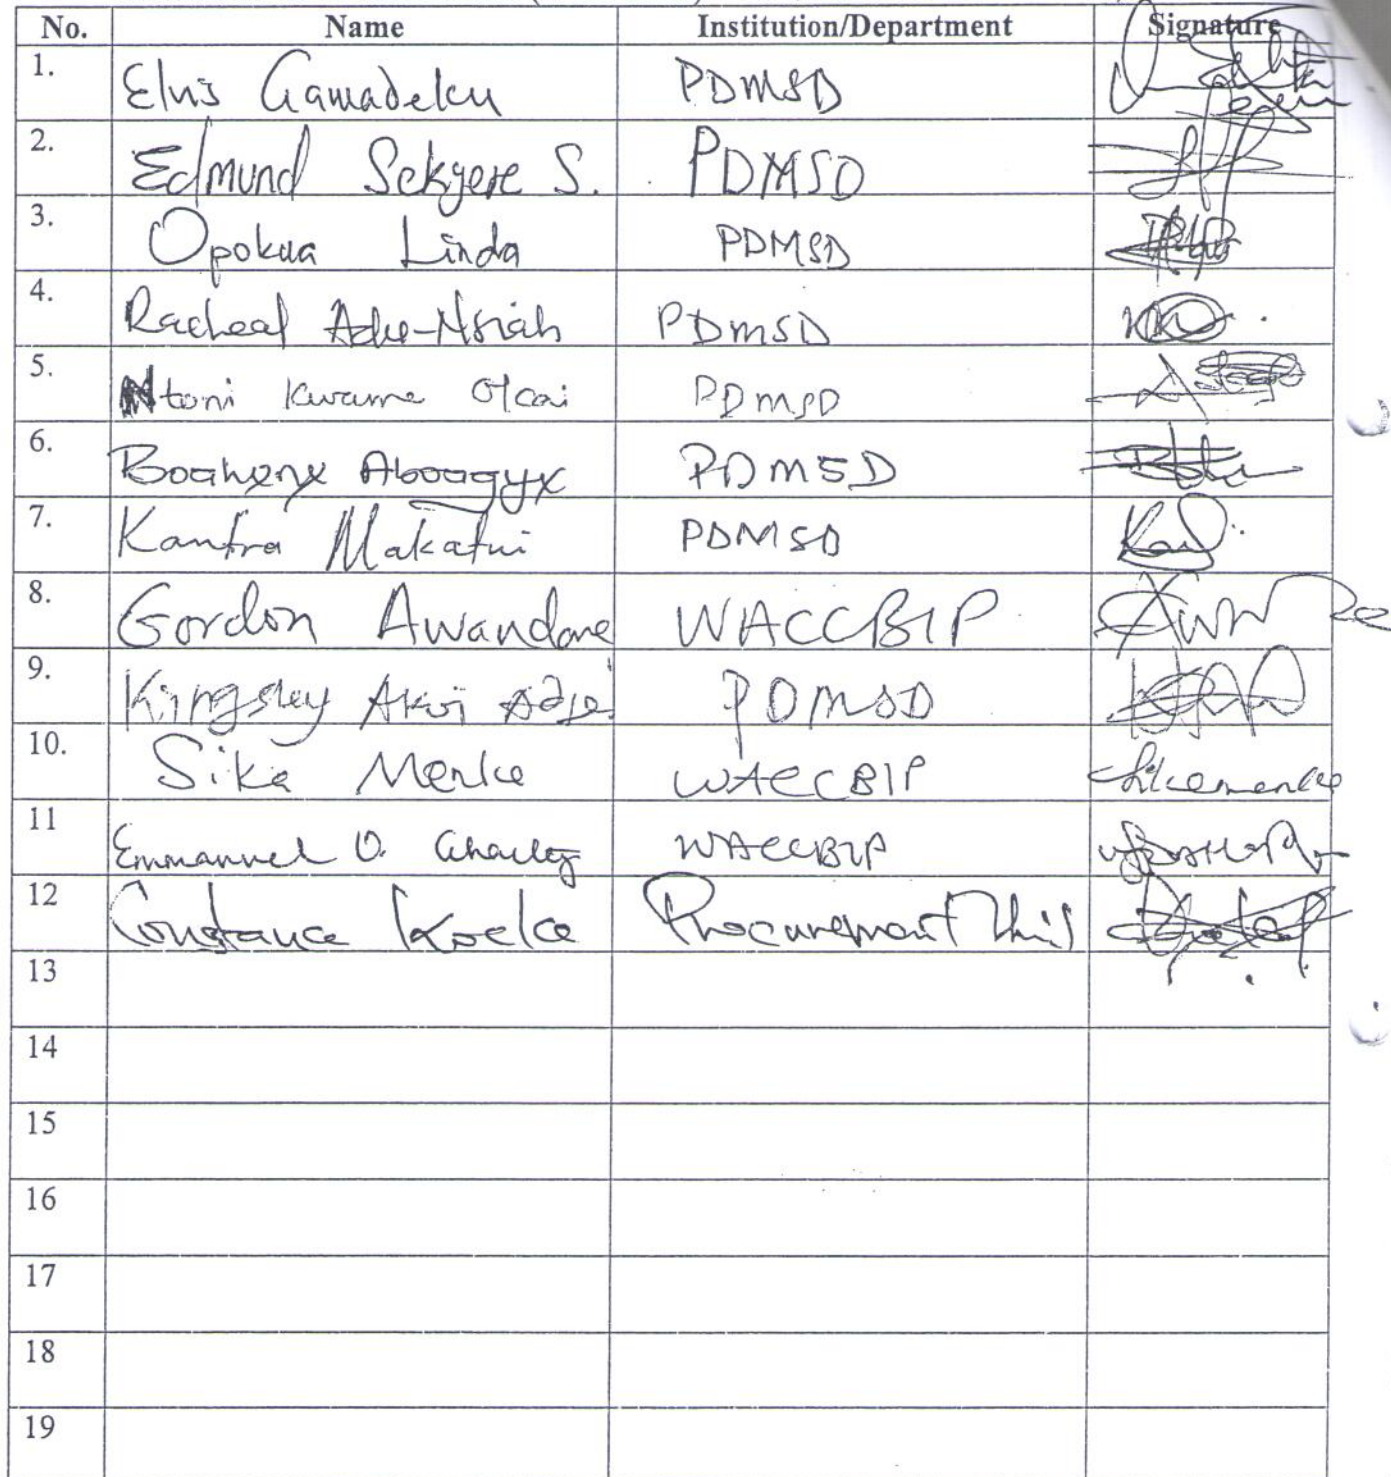 No. Name Institution/Department Signature
1. Elvis Gamadeku PDMSD
2. Edmund Sekyere S. PDMSD
3. Opokua Linda PDMSD
4. Racheal Adu-Nsiah PDMSD
5. Ntoni Kwame PDMSD
6. Boahene Aboagye PDMSD
7. Kantra Makafui PDMSD
8. Gordon Awandare WACCBIP
9. Kingsley PDMSD
10. Sika Menka WACCBIP Sikamenka
11 Emmanuel O. WACCBIP
12 Constance Procurement Unit
13
14
15
16
17
18
19